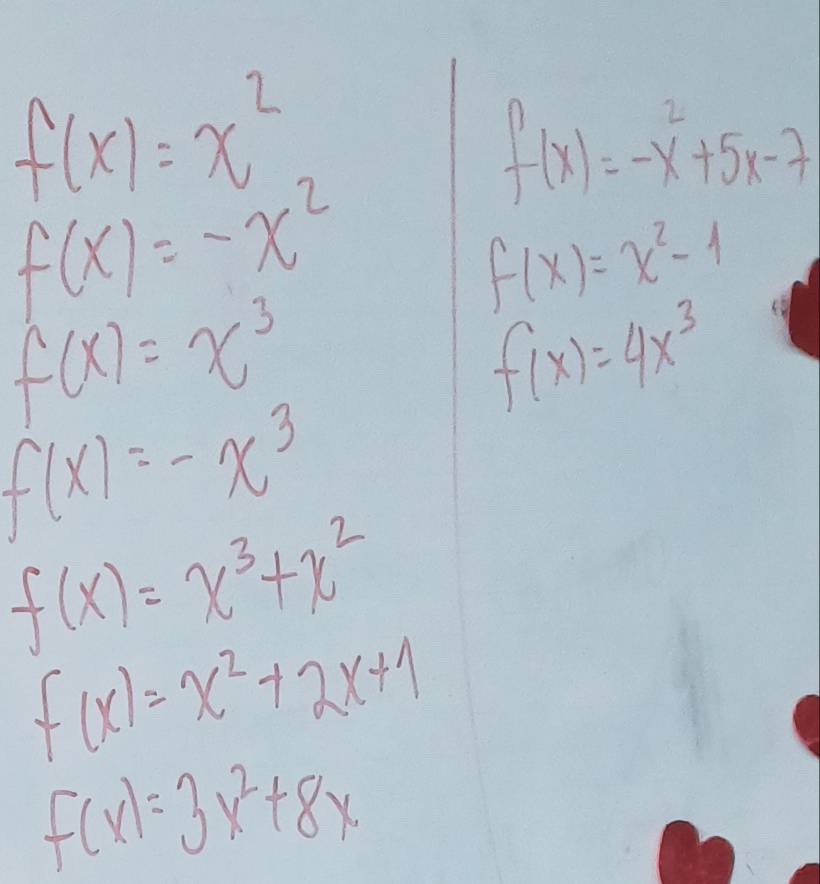 f(x) = x²
f(x) = -x²
f(x) = x³
f(x) = -x³
f(x) = x³+x²
f(x) = x²+2x+1
f(x) = 3x²+8x
f(x) = -x²+5x-7
f(x) = x²-1
f(x) = 4x³